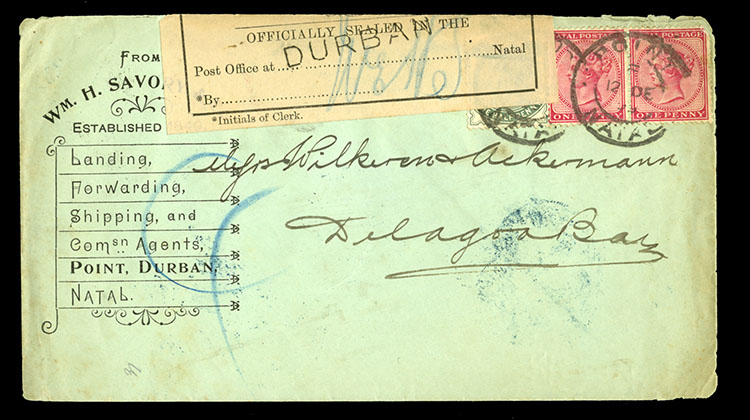 OFFICIALLY SEALED IN THE
DURBAN
Post Office at Natal
*By
*Initials of Clerk.
FROM
WM. H. SAVO
ESTABLISHED
Landing,
Forwarding,
Shipping, and
Comsn Agents,
POINT, DURBAN,
NATAL.
TAL POSTAGE
NATAL POSTAGE
ONE PENNY
POINT
12 DE
NATAL
Wilkeren & Ackermann
Delagoa Bay